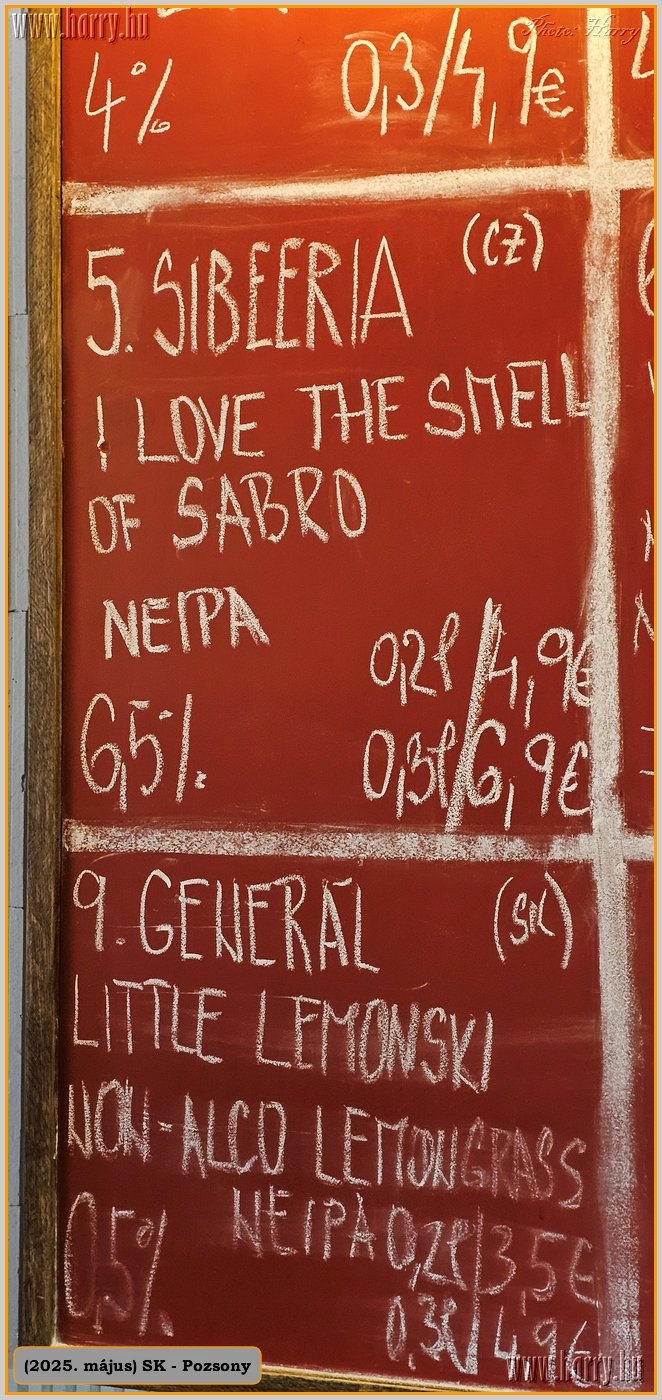 www.harry.hu
Photo: Harry
4% 0,3/4,9€
5. SIBEERIA (CZ)
I LOVE THE SMELL
OF SABRO
NEIPA
0,2l/4,9€
6,5% 0,3l/6,9€
9. GENERÁL
LITTLE LEMONSKI
NON-ALCO LEMONGRASS
NEIPA 0,2l/3,5€
0,5%
0,3l/4,9€
(2025. május) SK - Pozsony
www.harry.hu